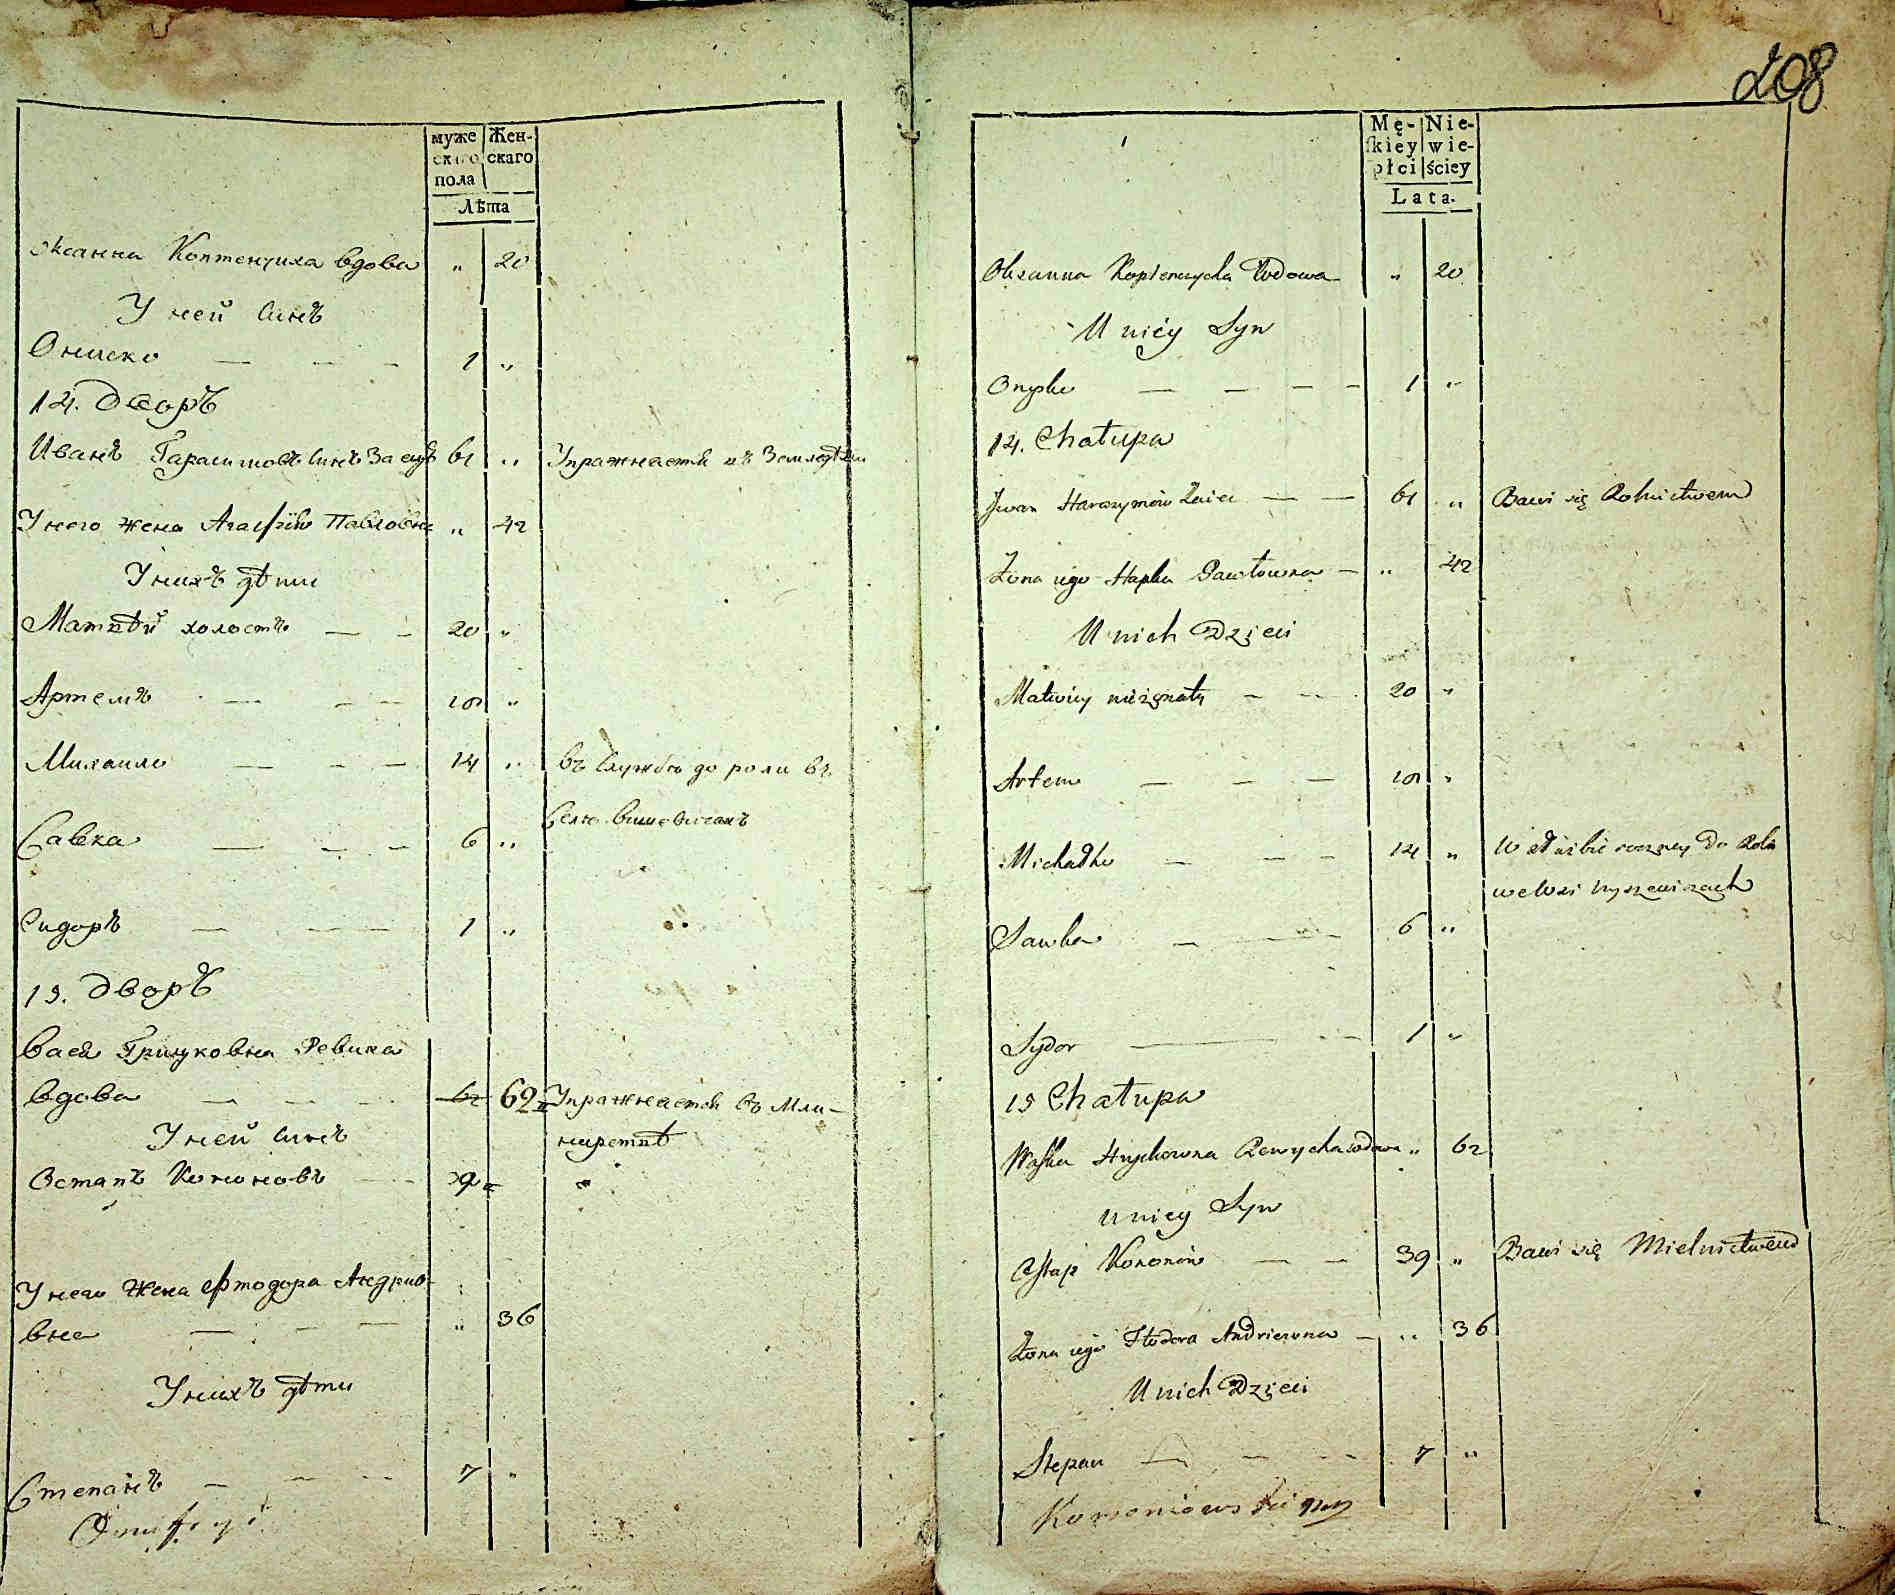 208
муже
скаго
пола
Жен-
скаго
Лѣта
Оксанна Коптенчиха вдова " 20
У ней Синъ
Ониско — — — 1 "
14. Дворъ
Иванъ Гарасимовъ Синъ Заецъ 61 " Упражнается въ Земледѣлии
У него жена Агафiя Павловна " 42
У нихъ дѣти
Матвѣй холостъ — — 20 "
Артемъ — — — "
Михаило — — — 14 " въ Службѣ до роли въ
Савка — — — 6 "
Сидоръ — — — 1 "
15. Дворъ
Васка Грицковна Ревиха
вдова — — — 62 62 Упражнается въ Мли-
У ней Синъ
нарствѣ
Остапъ Кононовъ — —
У него Жена Фтодора Андрио-
вна — — — " 36
У нихъ дѣти
Степанъ — — — 7 "
Mę-
skiey
płci
Nie-
wie-
ściey
Lata.
Oksanna Kopienczycha Wdowa " 20
U niey Syn
Onysko — — — — 1 "
14. Chałupa
Jwan Harasymów Zaiec — — 61 " Bawi się Rolnictwem
Żona iego Hapka Pawłowna — " 42
U nich Dzieci
Matwiey nieżonaty — — 20 "
Artem — — — "
Michałko — — — 14 " W służbie roczney do Roli
we Wsi Wyszewiczach
Sawka — — — 6 "
Sydor — — — 1 "
15 Chałupa
Waska Hryckowna Rewycha wdowa " 62
U niey Syn
Ostap Kononów — — 39 " Bawi się Mielnictwem
Żona iego Ftodora Andriewna — " 36
U nich Dzieci
Stepan — — — 7 "